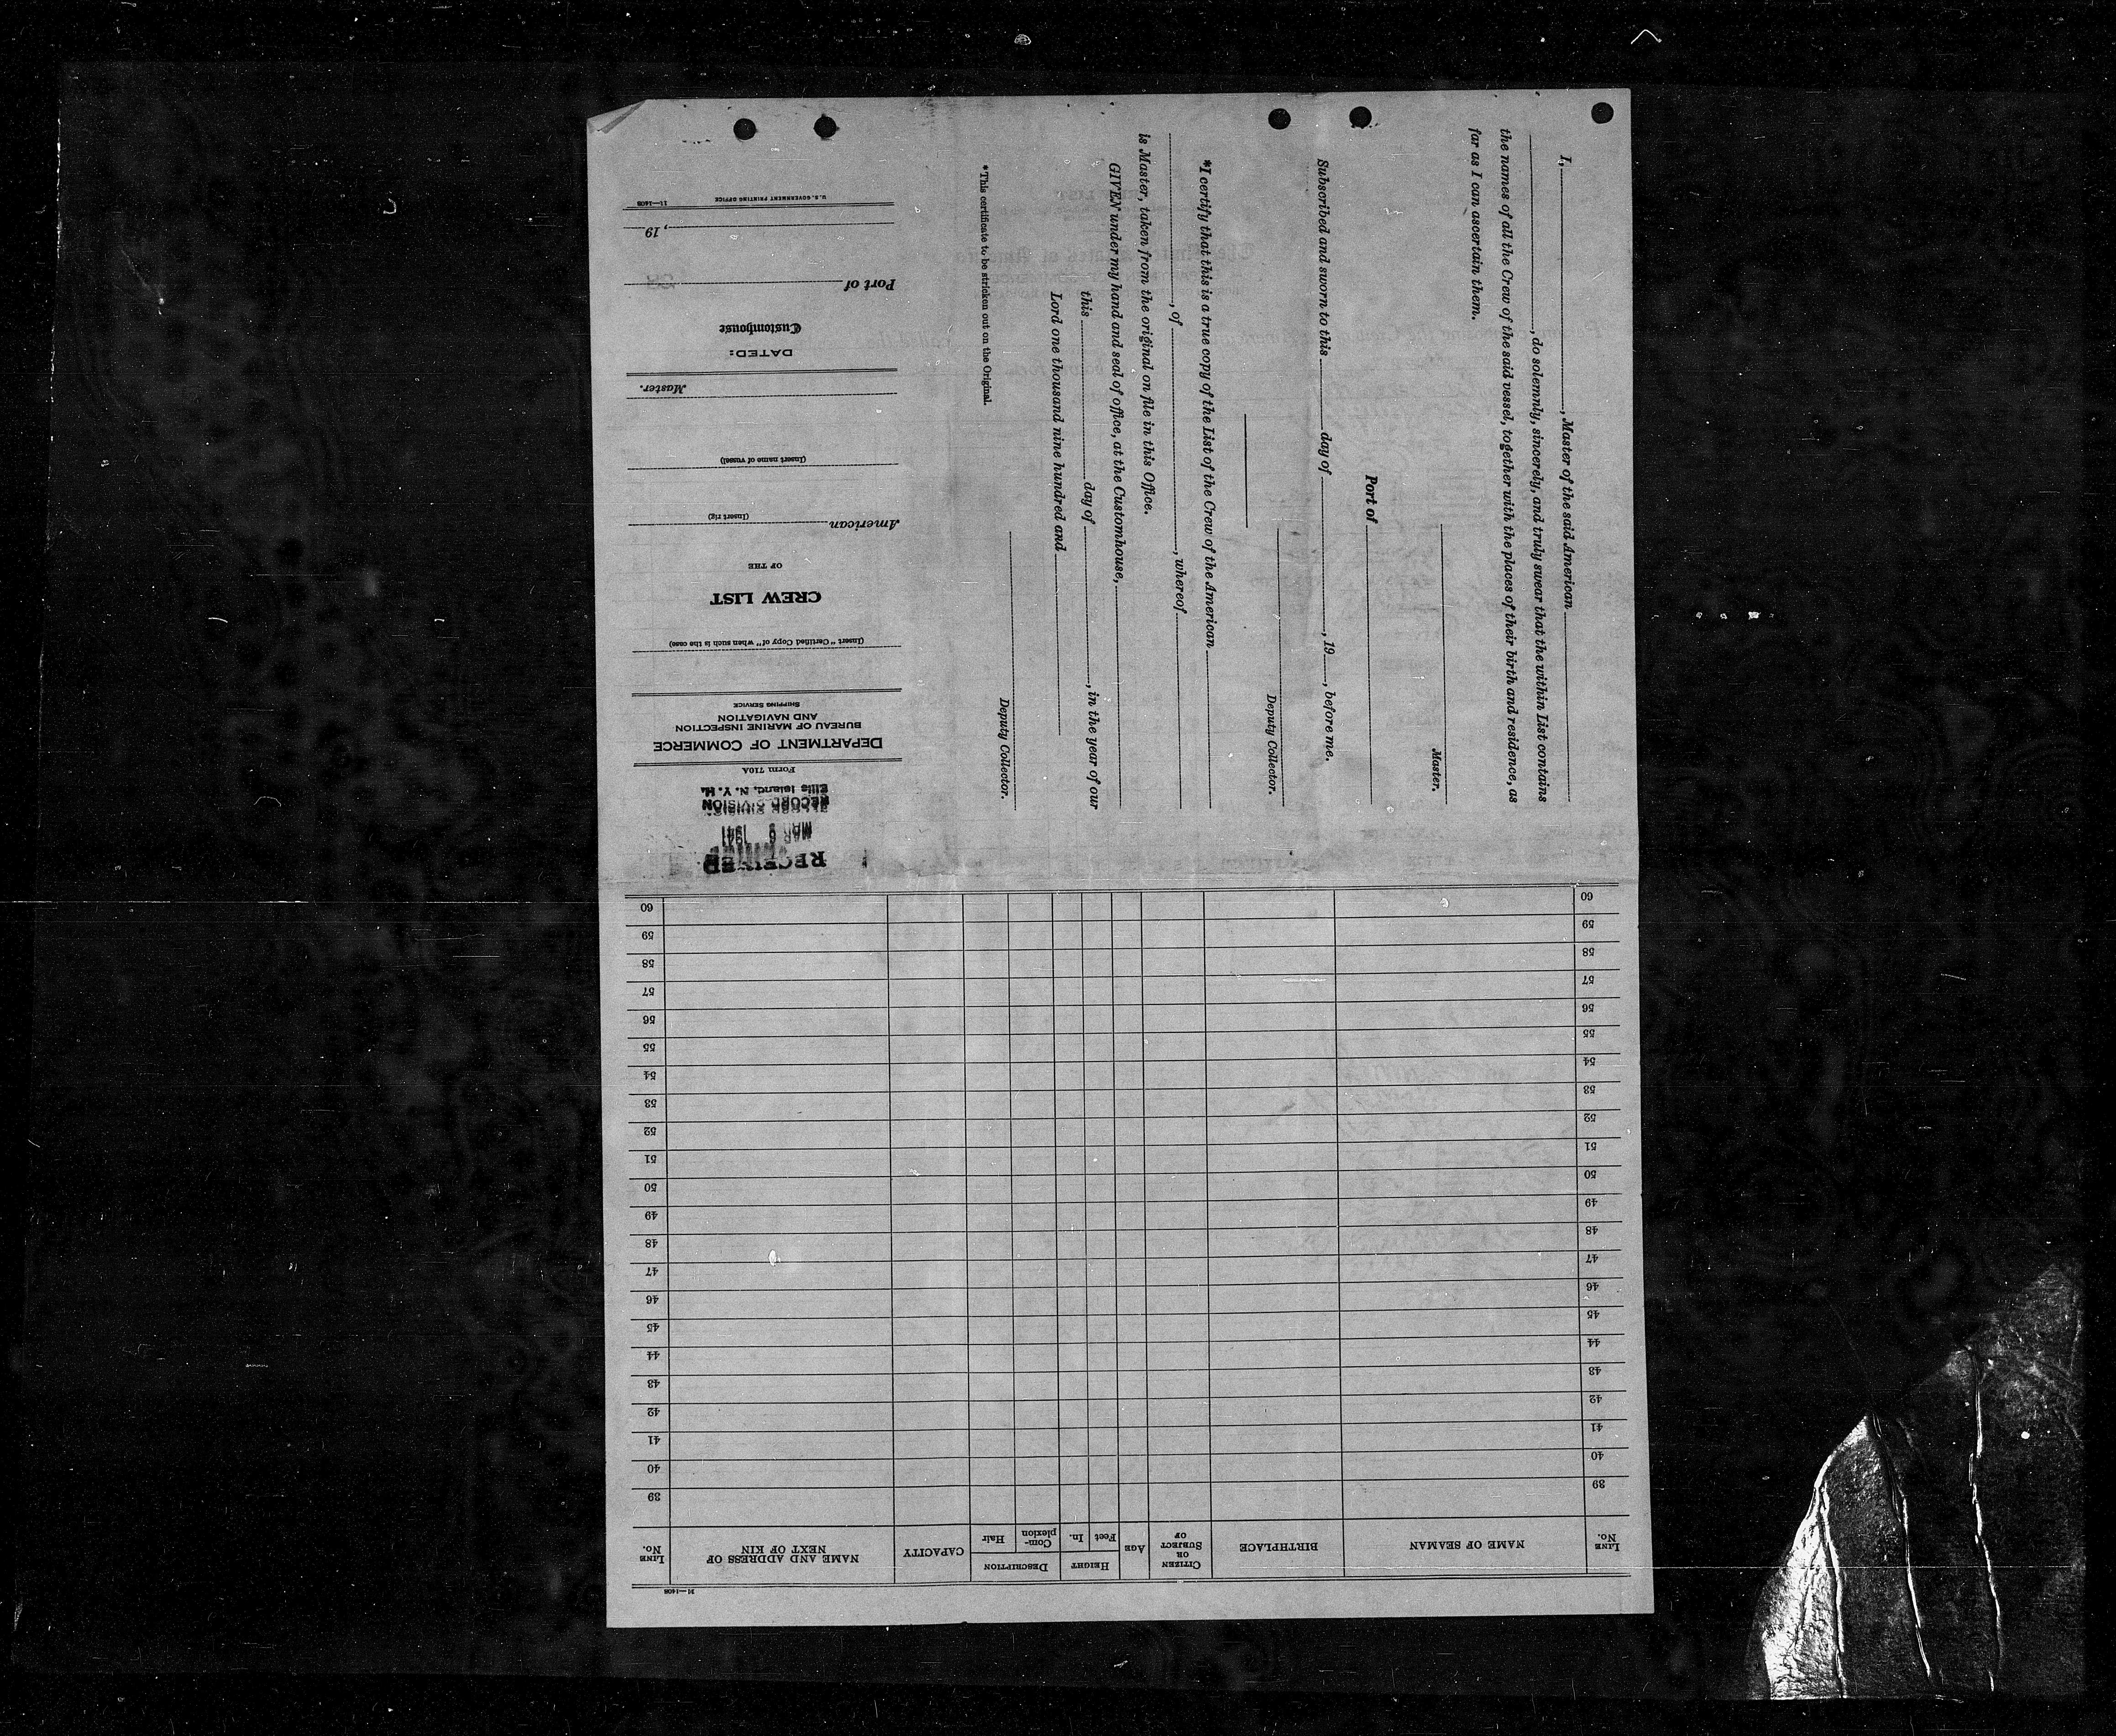 I, , Master of the said American
, do solemnly, sincerely, and truly swear that the within List contains
the names of all the Crew of the said vessel, together with the places of their birth and residence, as
far as I can ascertain them.
Master.
Port of
Subscribed and sworn to this day of , 19 , before me.
Deputy Collector.
*I certify that this is a true copy of the List of the Crew of the American
, of , whereof
is Master, taken from the original on file in this Office.
GIVEN under my hand and seal of office, at the Customhouse,
this day of , in the year of our
Lord one thousand nine hundred and
Deputy Collector.
*This certificate to be stricken out on the Original.
RECEIVED
MAR 9 1941
RECORD DIVISION
Ellis Island, N. Y. H.
Form 710A
DEPARTMENT OF COMMERCE
BUREAU OF MARINE INSPECTION
AND NAVIGATION
SHIPPING SERVICE
(Insert "Certified Copy of" when such is the case)
CREW LIST
OF THE
American
(Insert rig)
(Insert name of vessel)
Master.
DATED:
Customhouse
Port of
, 19
U.S. GOVERNMENT PRINTING OFFICE 11—1408
11—1408
LINE No. NAME OF SEAMAN BIRTHPLACE CITIZEN OR SUBJECT OF AGE HEIGHT Feet In. DESCRIPTION Complexion Hair CAPACITY NAME AND ADDRESS OF NEXT OF KIN LINE No.
39 39
40 40
41 41
42 42
43 43
44 44
45 45
46 46
47 47
48 48
49 49
50 50
51 51
52 52
53 53
54 54
55 55
56 56
57 57
58 58
59 59
60 60